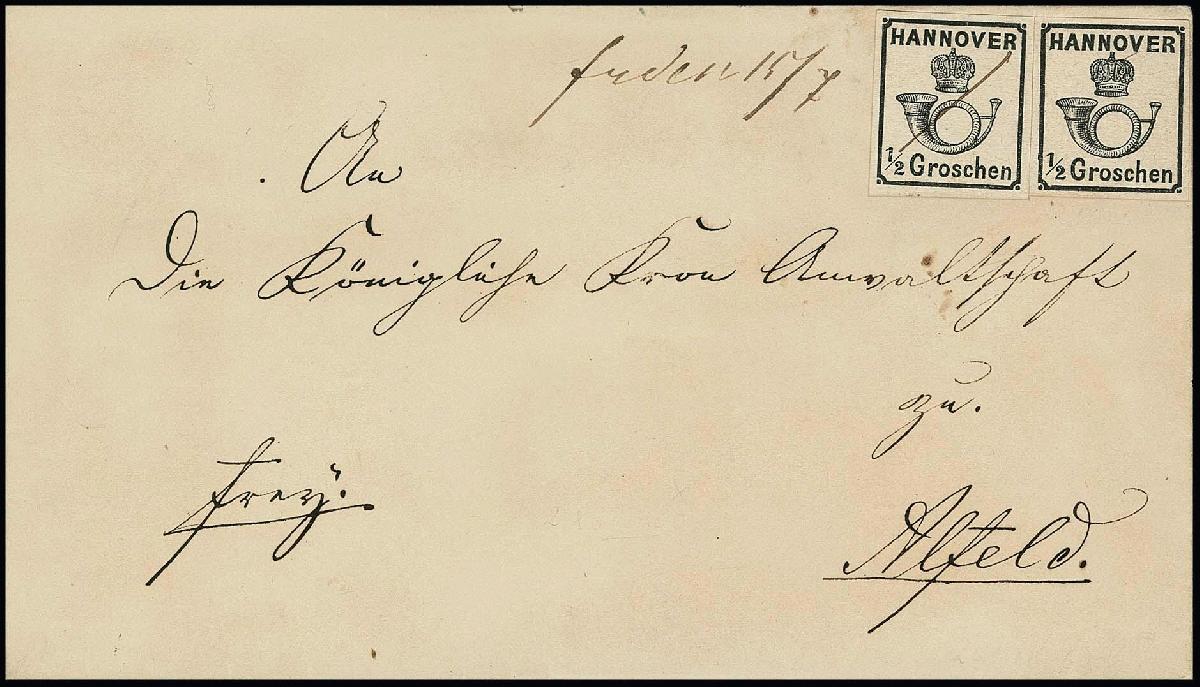 HANNOVER HANNOVER
1/2 Groschen 1/2 Groschen
15/7
An
Die Königliche Kron Anwaltschaft
zu.
frey.
Alfeld.